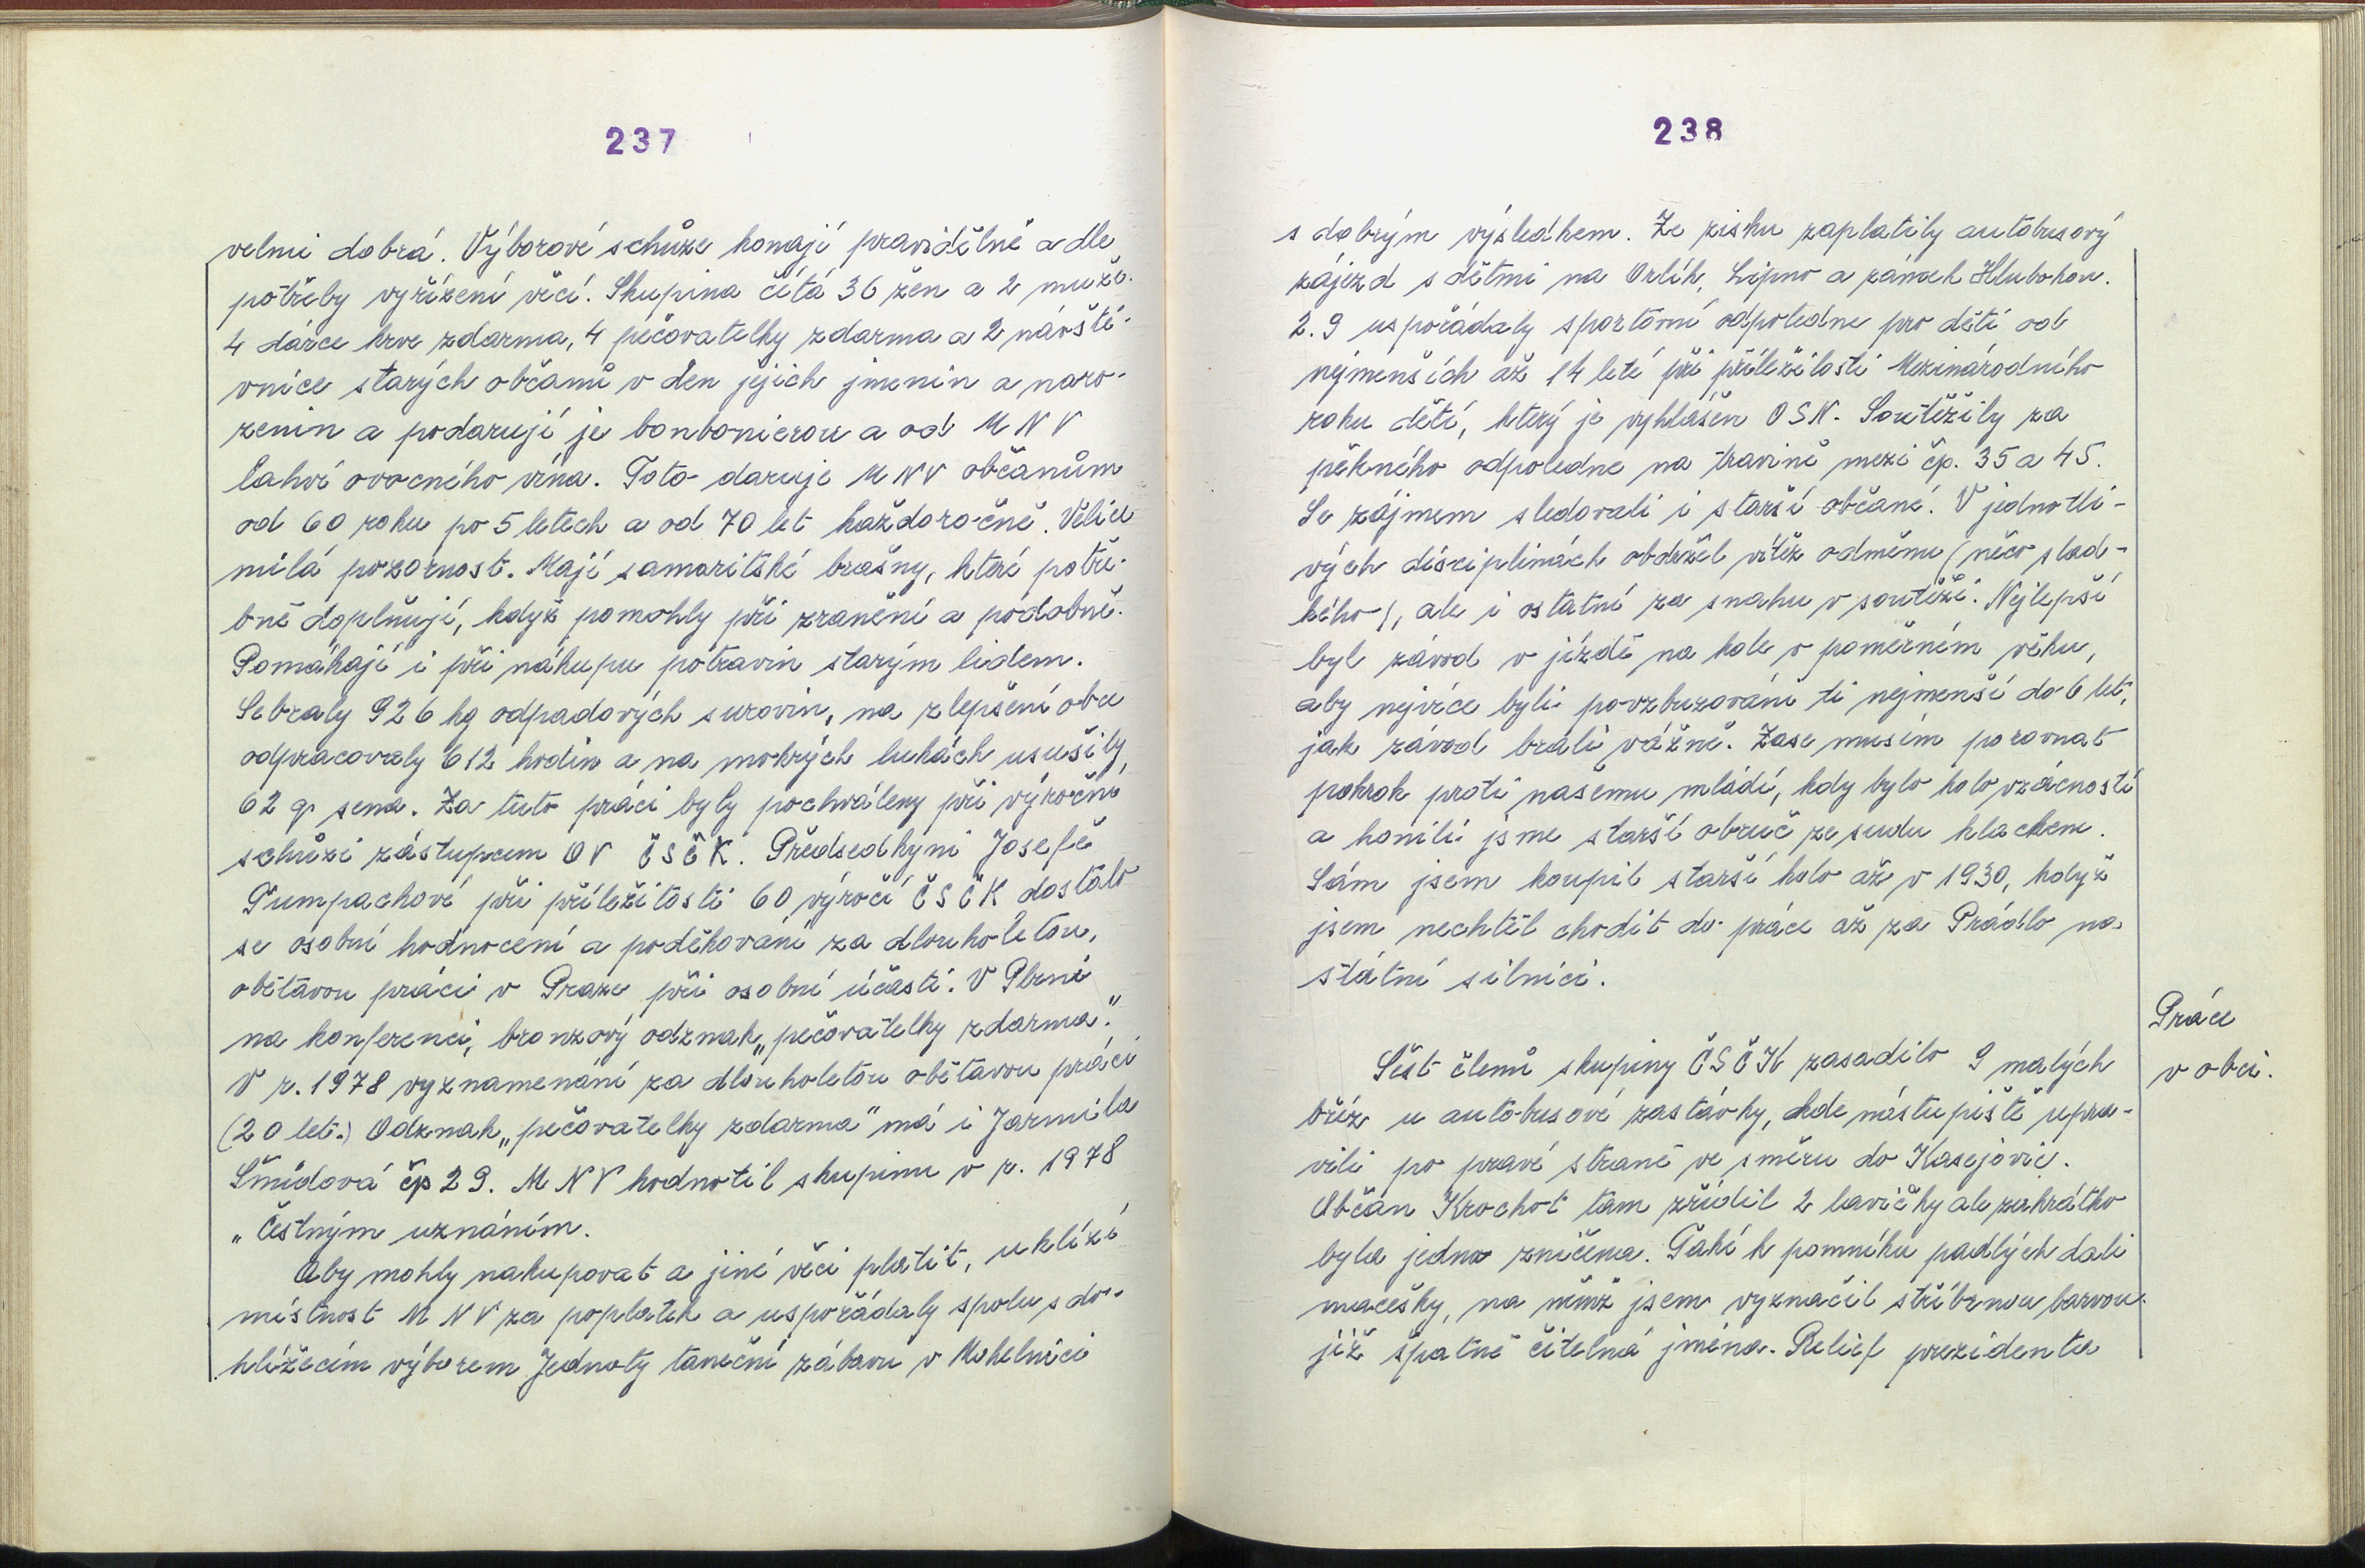 237
velmi dobrá. Výborové schůze konají pravidělně a dle
potřeby vyřízení věcí. Skupina čítá 36 žen a 2 muže.
4 dárce krve zdarma, 4 pečovatelky zdarma a 2 návště-
vnice starých občanů v den jejich jmenin a naro-
zenin a podarují je bonbonierou a od MNV
lahví ovocného vína. Toto daruje MNV občanům
od 60 roku po 5 letech a od 70 let každoročně. Velice
milá pozornost. Mají samaritské brašny, které potře-
bně doplňují, když pomohly při zranění a podobně.
Pomáhají i při nákupu potravin starým lidem.
Sebraly 926 kg odpadových surovin, na zlepšení obce
odpracovaly 612 hodin a na mokrých lukách usušily
62 q sena. Za tuto práci byly pochváleny při výroční
schůzi zástupcem OV ČSČK. Předsedkyni Josefě
Tumpachové při příležitosti 60 výročí ČSČK dostalo
se osobní hodnocení a poděkování za dlouholetou,
obětavou práci v Praze při osobní účasti. V Plzni
na konferenci, bronzový odznak „pečovatelky zdarma."
V r. 1978 vyznamenání za dlouholetou obětavou práci
(20 let.) Odznak „pečovatelky zdarma" má i Jarmila
Šmídová čp 29. MNV hodnotil skupinu v r. 1978
„Čestným uznáním.
Aby mohly nakupovat a jiné věci platit, uklízí
místnost MNV za poplatek a uspořádaly spolu s do-
hlížecím výborem Jednoty taneční zábavu v Mohelnici
238
s dobrým výsledkem. Ze zisku zaplatily autobusový
zájezd s dětmi na Orlík, Lipno a zámek Hlubokou.
2.9 uspořádaly sportovní odpoledne pro děti od
nejmenších až 14 leté při příležitosti Mezinárodního
roku dětí, který je vyhlášen OSN. Soutěžily za
pěkného odpoledne na travině mezi čp. 35 a 45.
Se zájmem sledovali i starší občané. V jednotli-
vých disciplinách obdržel vítěz odměnu (něco slad-
kého), ale i ostatní za snahu v soutěži. Nejlepší
byl závod v jízdě na kole v poměrném věku,
aby nejvíce byli povzbuzováni ti nejmenší do 6 let,
jak závod brali vážně. Zase musím porovnat
pokrok proti našemu mládí, kdy bylo kolo vzácností
a honili jsme starší obruč ze sudu klackem.
Sám jsem koupil starší kolo až v 1930, když
jsem nechtěl chodit do práce až za Prádlo na
státní silnici.
Práce
v obci.
Šest členů skupiny ČSČK zasadilo 9 malých
bříz u autobusové zastávky, kde nástupiště upra-
vili po pravé straně ve směru do Kasejovic.
Občan Krochot tam zřídil 2 lavičky ale zakrátko
byla jedna zničena. Také k pomníku padlých dali
macešky, na němž jsem vyznačil stříbrnou barvou
již špatně čitelná jména. Relief prezidenta